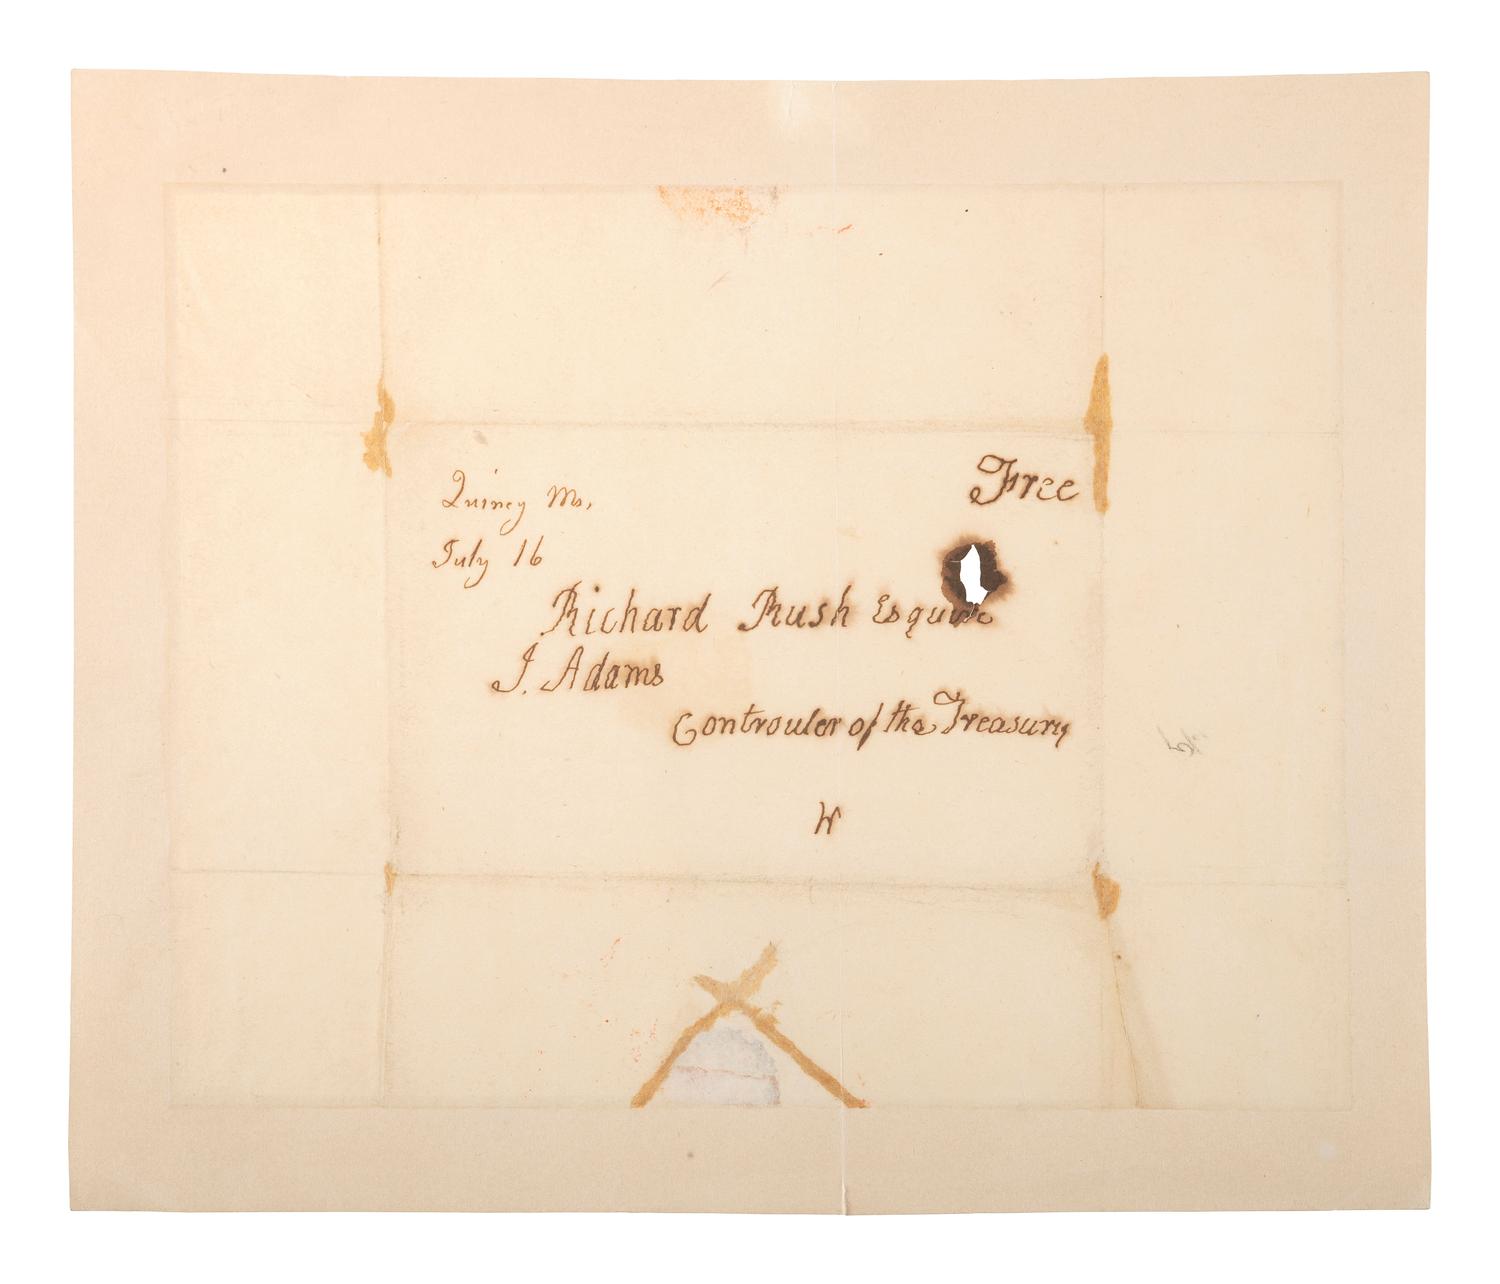 Free
Quincy Ms,
July 16
Richard Rush Esquire
J. Adams
Controuler of the Treasury
W